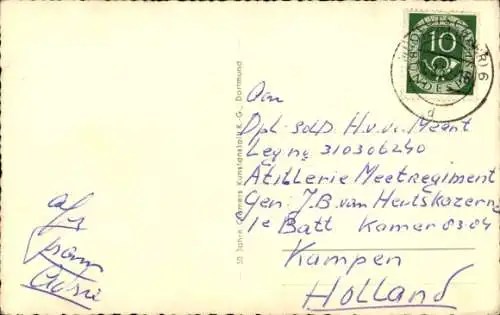 10
Aan
Dpl. sold. H.v.v. Meent
Leg nr 310306240
Atillerie Meetregiment
Gen. J.B. van Heutskazerne
1e Batt Kamer 03-04
Kampen
Holland
afz
50 Jahre Cramers Kunstanstalt K.-G., Dortmund